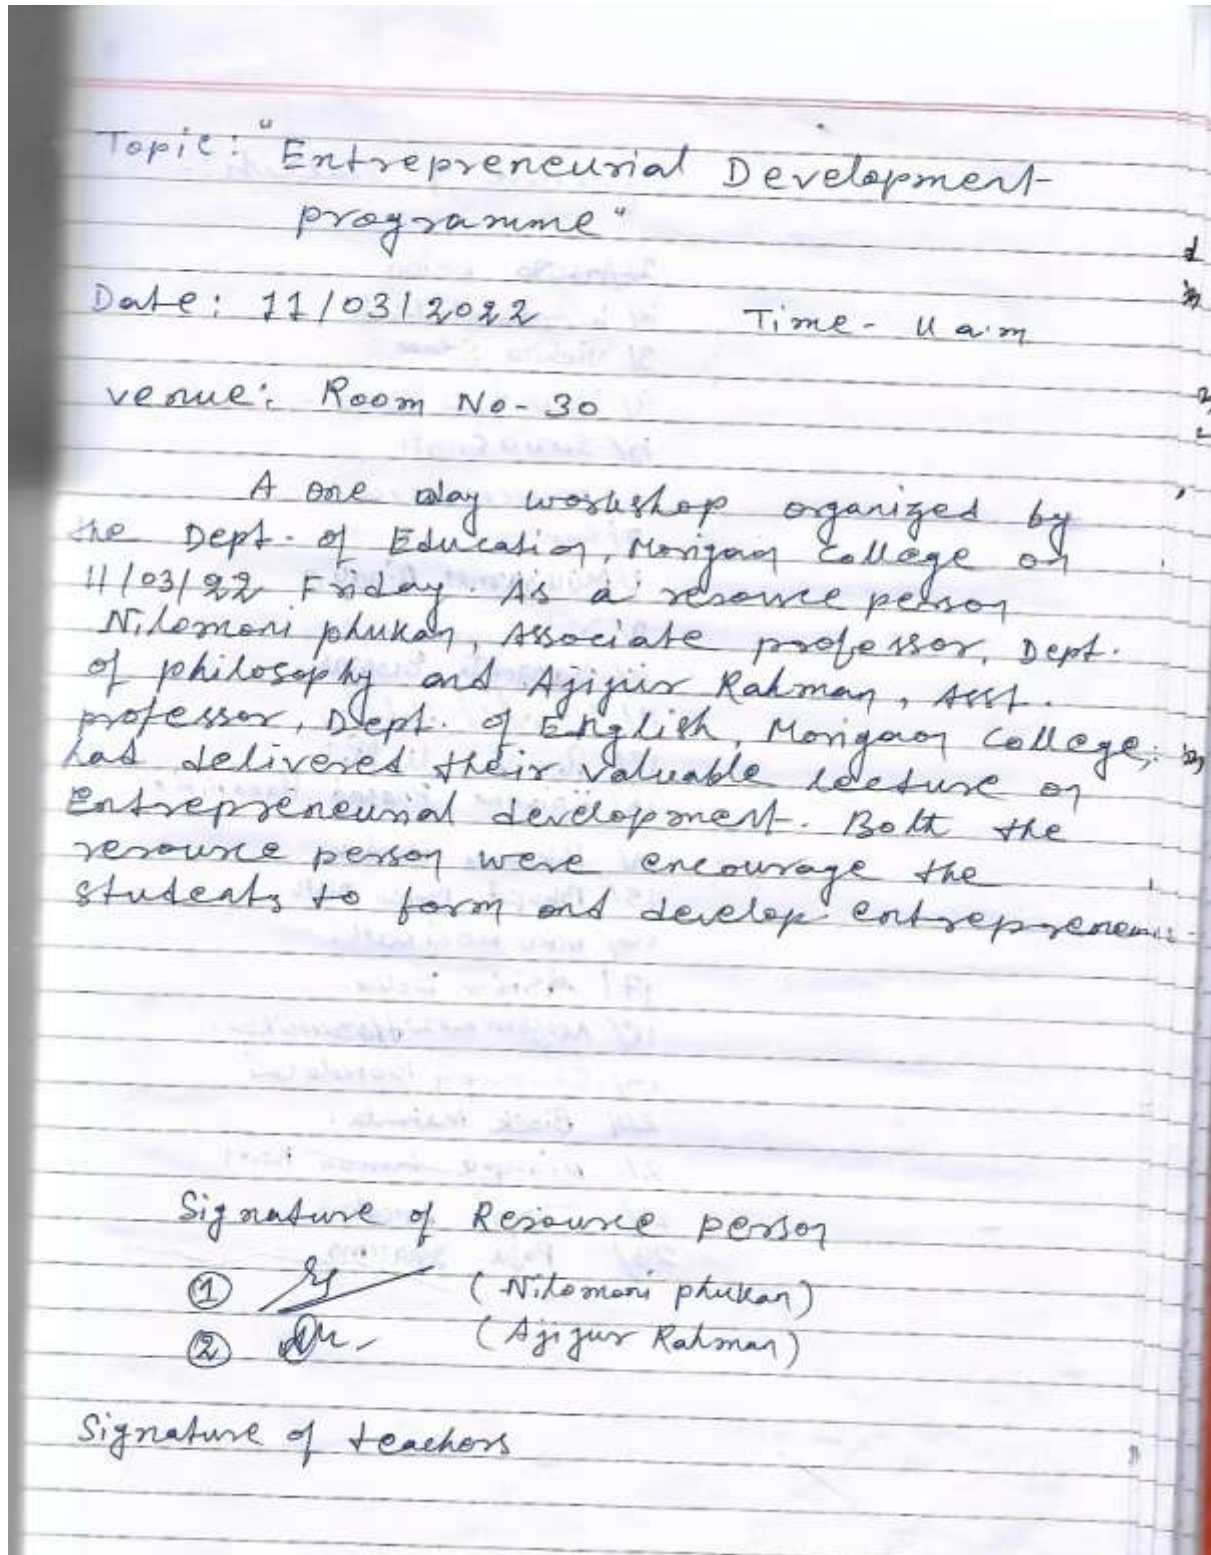 Topic: "Entrepreneurial Development
programme"
Date: 11/03/2022 Time - 11 a.m
venue: Room No - 30
A one day workshop organized by
the Dept. of Education, Morigaon College on
11/03/22 Friday. As a resource person
Nilomoni phukan, Associate professor, Dept.
of philosophy and Ajijur Rahman, Asst.
professor, Dept. of English, Morigaon College,
had delivered their valuable lecture on
Entrepreneurial development. Both the
resource person were encourage the
students to form and develop
Signature of Resource person
① (Nilomoni phukan)
② (Ajijur Rahman)
Signature of teachers